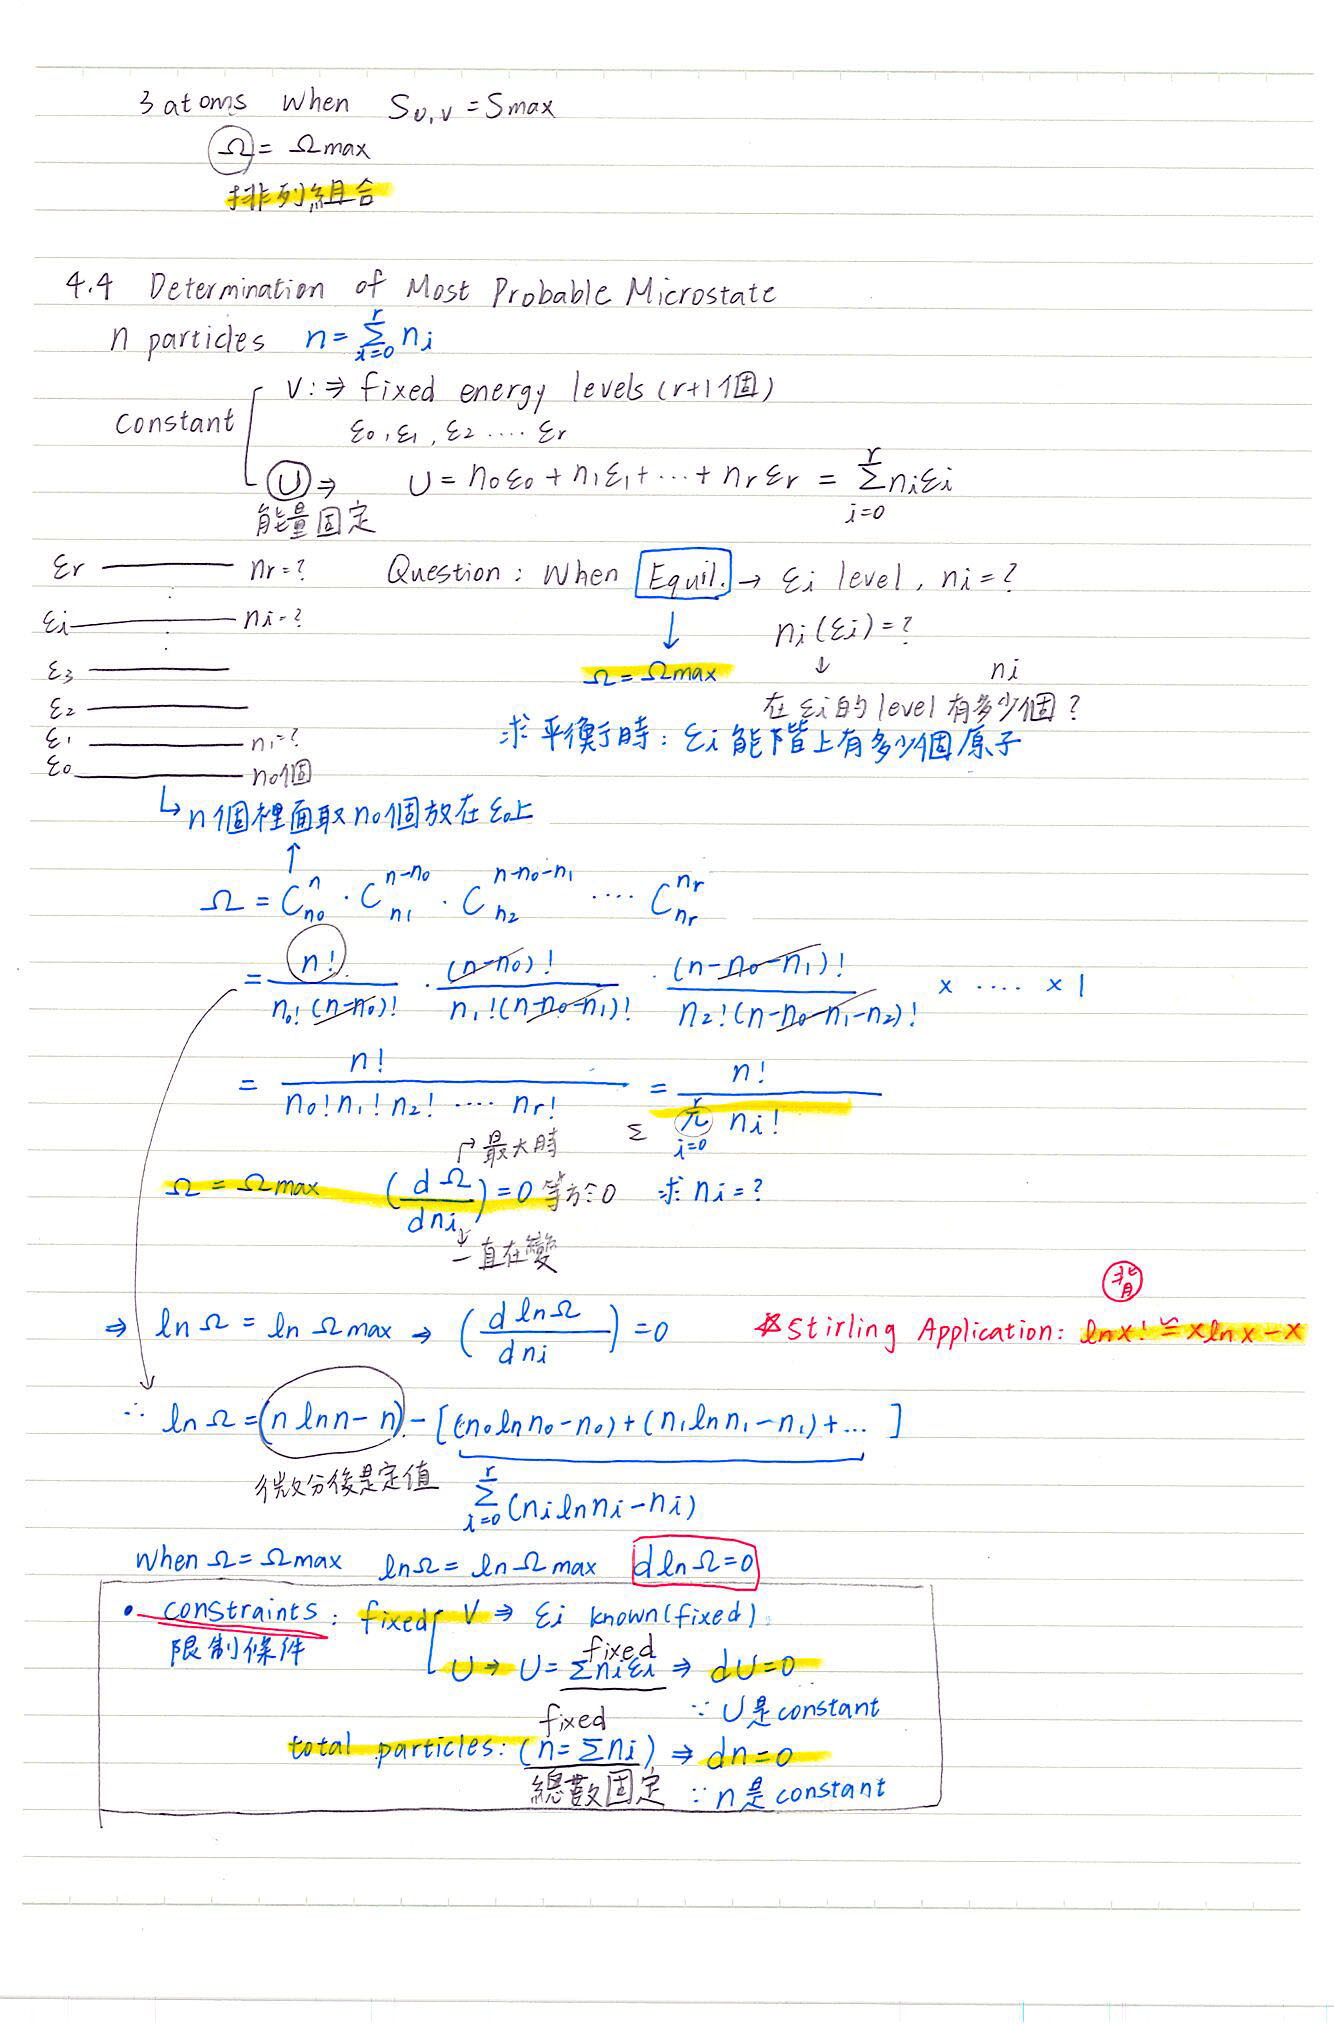 3 atoms when S_U,V = Smax
Ω = Ωmax
排列組合
4.4 Determination of Most Probable Microstate
n particles n = Σ_{i=0}^{r} ni
constant
V: ⇒ fixed energy levels (r+1個)
ε0, ε1, ε2 .... εr
U ⇒ U = n0ε0 + n1ε1 + ... + nrεr = Σ_{i=0}^{r} niεi
能量固定
εr nr = ? Question: When Equil. → εi level, ni = ?
εi ni = ? ↓ ni(εi) = ?
ε3 Ω = Ωmax ↓ ni
ε2 在 εi 的 level 有多少個?
ε1 n1 = ? 求平衡時: εi 能階上有多少個原子
ε0 n0個
↳ n個裡面取n0個放在ε0上
↑
Ω = C^{n}_{n0} · C^{n-n0}_{n1} · C^{n-n0-n1}_{n2} .... C^{nr}_{nr}
= n!/(n0!(n-n0)!) · (n-n0)!/(n1!(n-n0-n1)!) · (n-n0-n1)!/(n2!(n-n0-n1-n2)!) × .... × 1
= n!/(n0! n1! n2! .... nr!) = n!/(π_{i=0}^{r} ni!)
Σ
↱ 最大時
Ω = Ωmax (dΩ/dni) = 0 等於0 求 ni = ?
↓
一直在變
背
⇒ lnΩ = lnΩmax → (d lnΩ/dni) = 0 * Stirling Application: ln x! ≃ x ln x - x
∴ lnΩ = (n ln n - n) - [(n0 ln n0 - n0) + (n1 ln n1 - n1) + ... ]
微分後是定值 Σ_{i=0}^{r} (ni ln ni - ni)
When Ω = Ωmax lnΩ = lnΩmax d lnΩ = 0
• constraints: fixed V ⇒ εi known (fixed).
限制條件 fixed
U → U = Σniεi ⇒ dU = 0
fixed ∵ U是constant
total particles: (n = Σni) ⇒ dn = 0
總數固定 ∵ n是constant